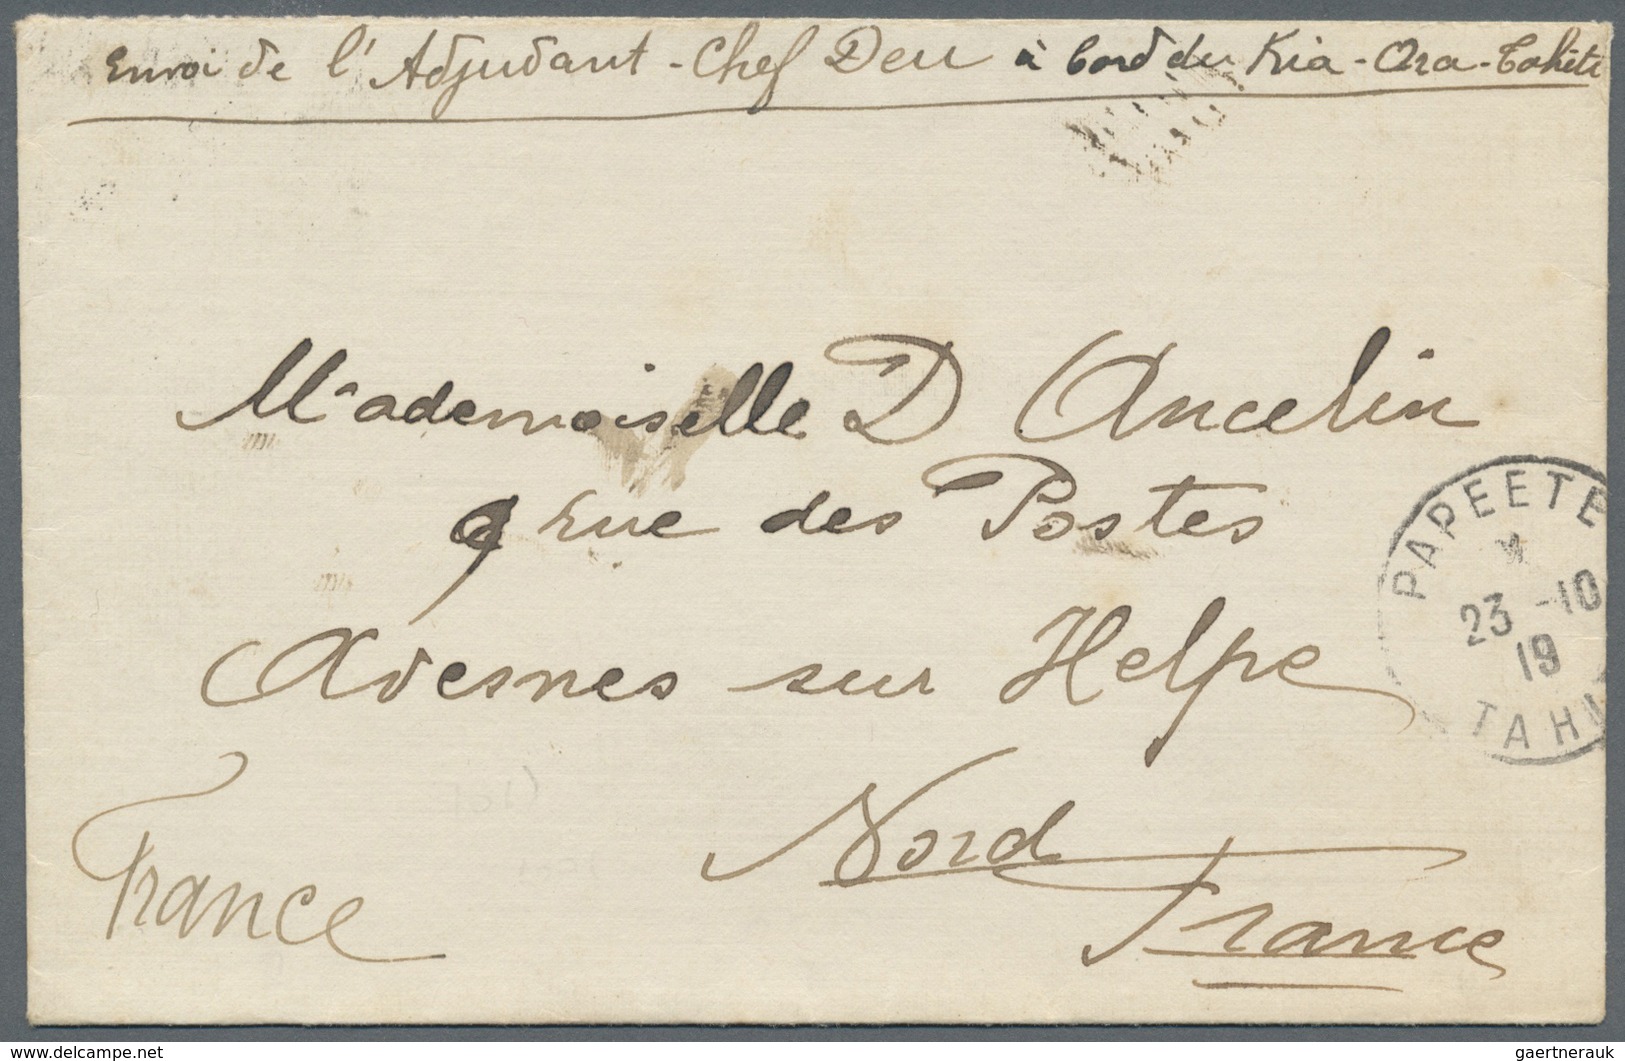 Envoi de l'Adjudant-Chef Deu à bord du Kia-Ora-Tahiti
Mademoiselle D Ancelin
9 rue des Postes
Avesnes sur Helpe
Nord
France
France
PAPEETE
23 -10
19
TAHI
© www.delcampe.net
gaertnerauk